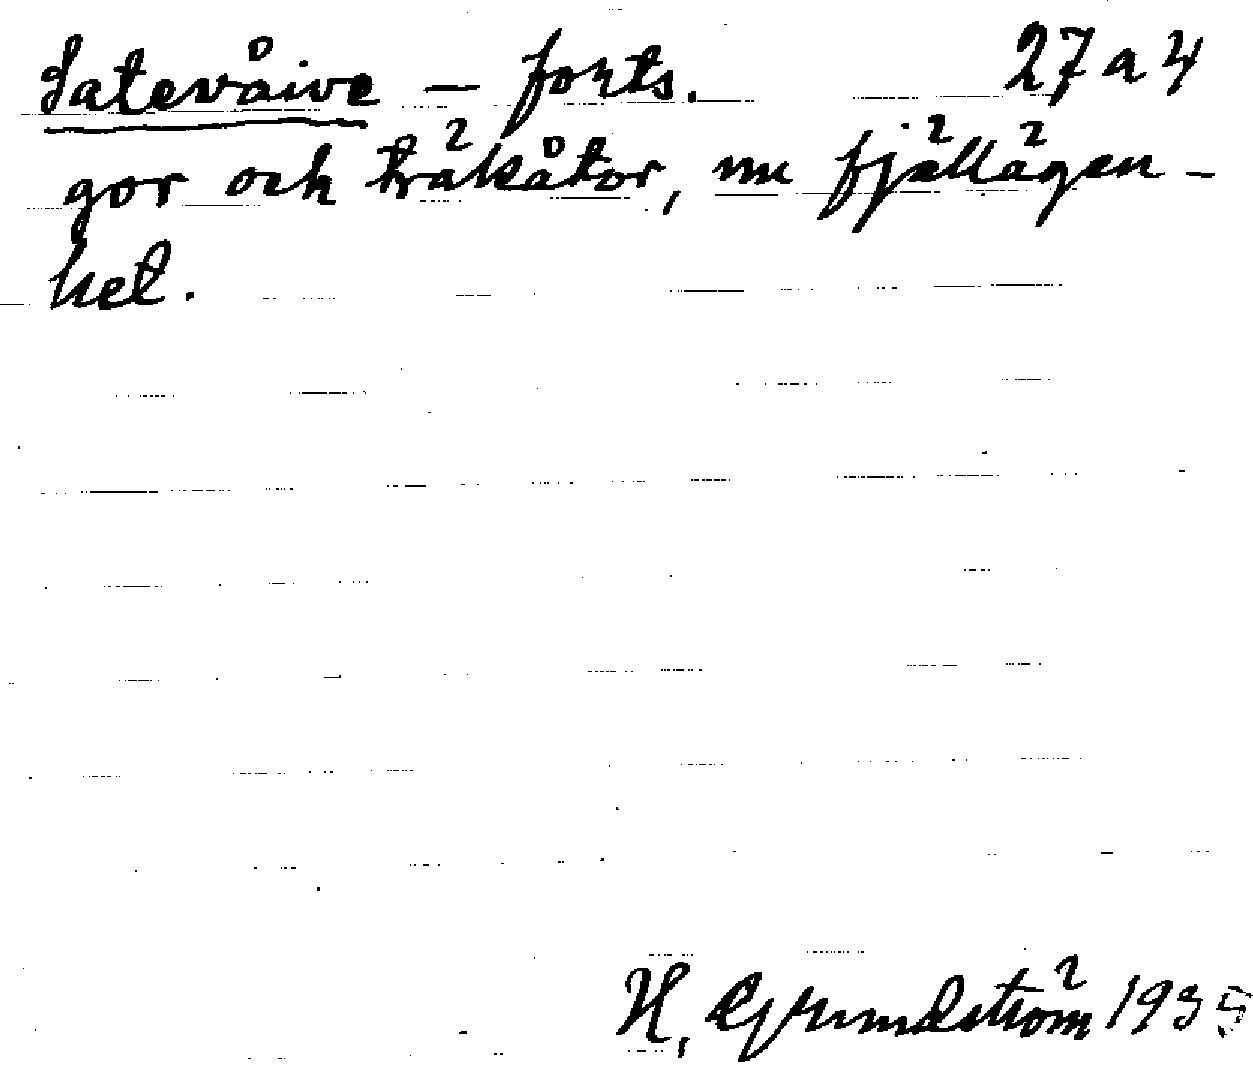 Satevåive – forts. 27 a 4
gor och träkåtor, nu fjällägen-
het.
H. Grundström 1935